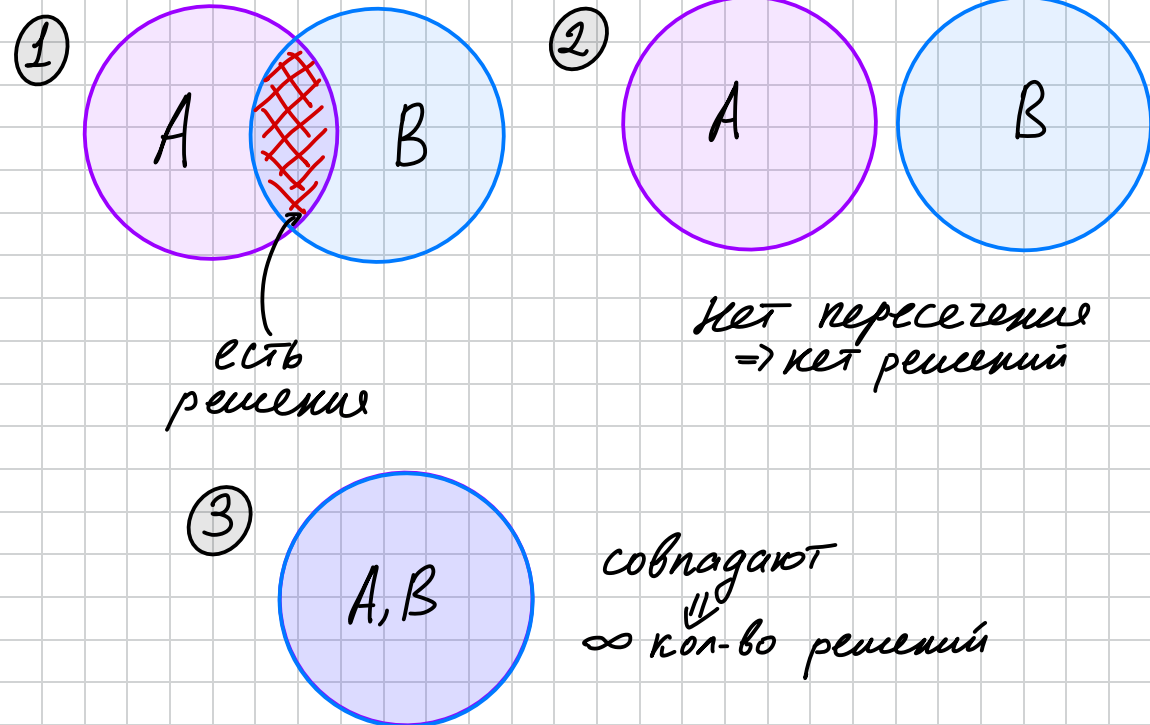 1
A
B
есть
решения
2
A
B
Нет пересечения
=> нет решений
3
A, B
совпадают
⇓
∞ кол-во решений